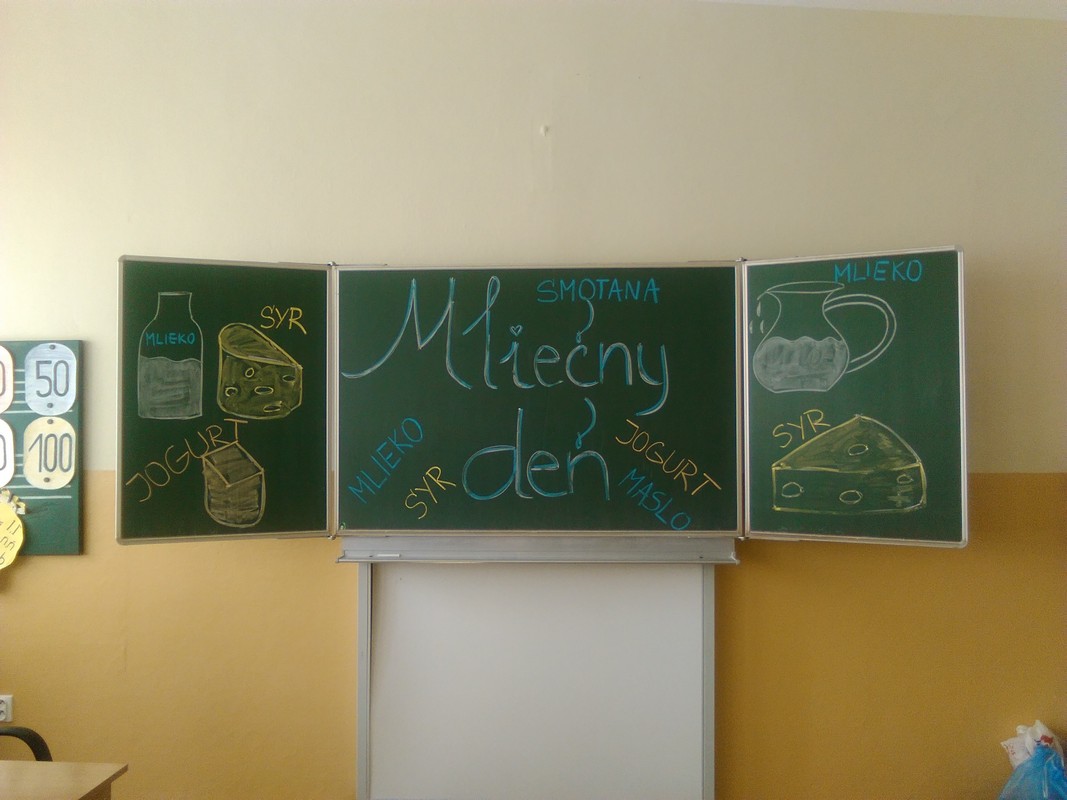 50
100
MLIEKO
SYR
JOGURT
SMOTANA
Mliečny
deň
MLIEKO
SYR
JOGURT
MASLO
MLIEKO
SYR